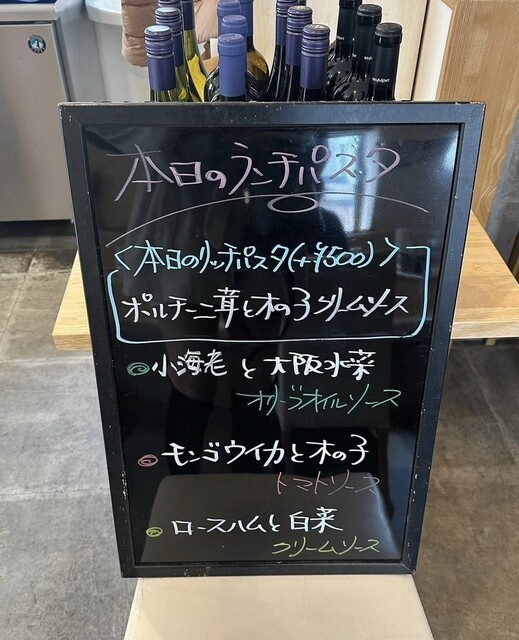 本日のランチパスタ
〈本日のリッチパスタ(+¥500)〉
ポルチーニ茸と木の子クリームソース
小海老と大阪水菜
オリーブオイルソース
モンゴウイカと木の子
トマトソース
ロースハムと白菜
クリームソース